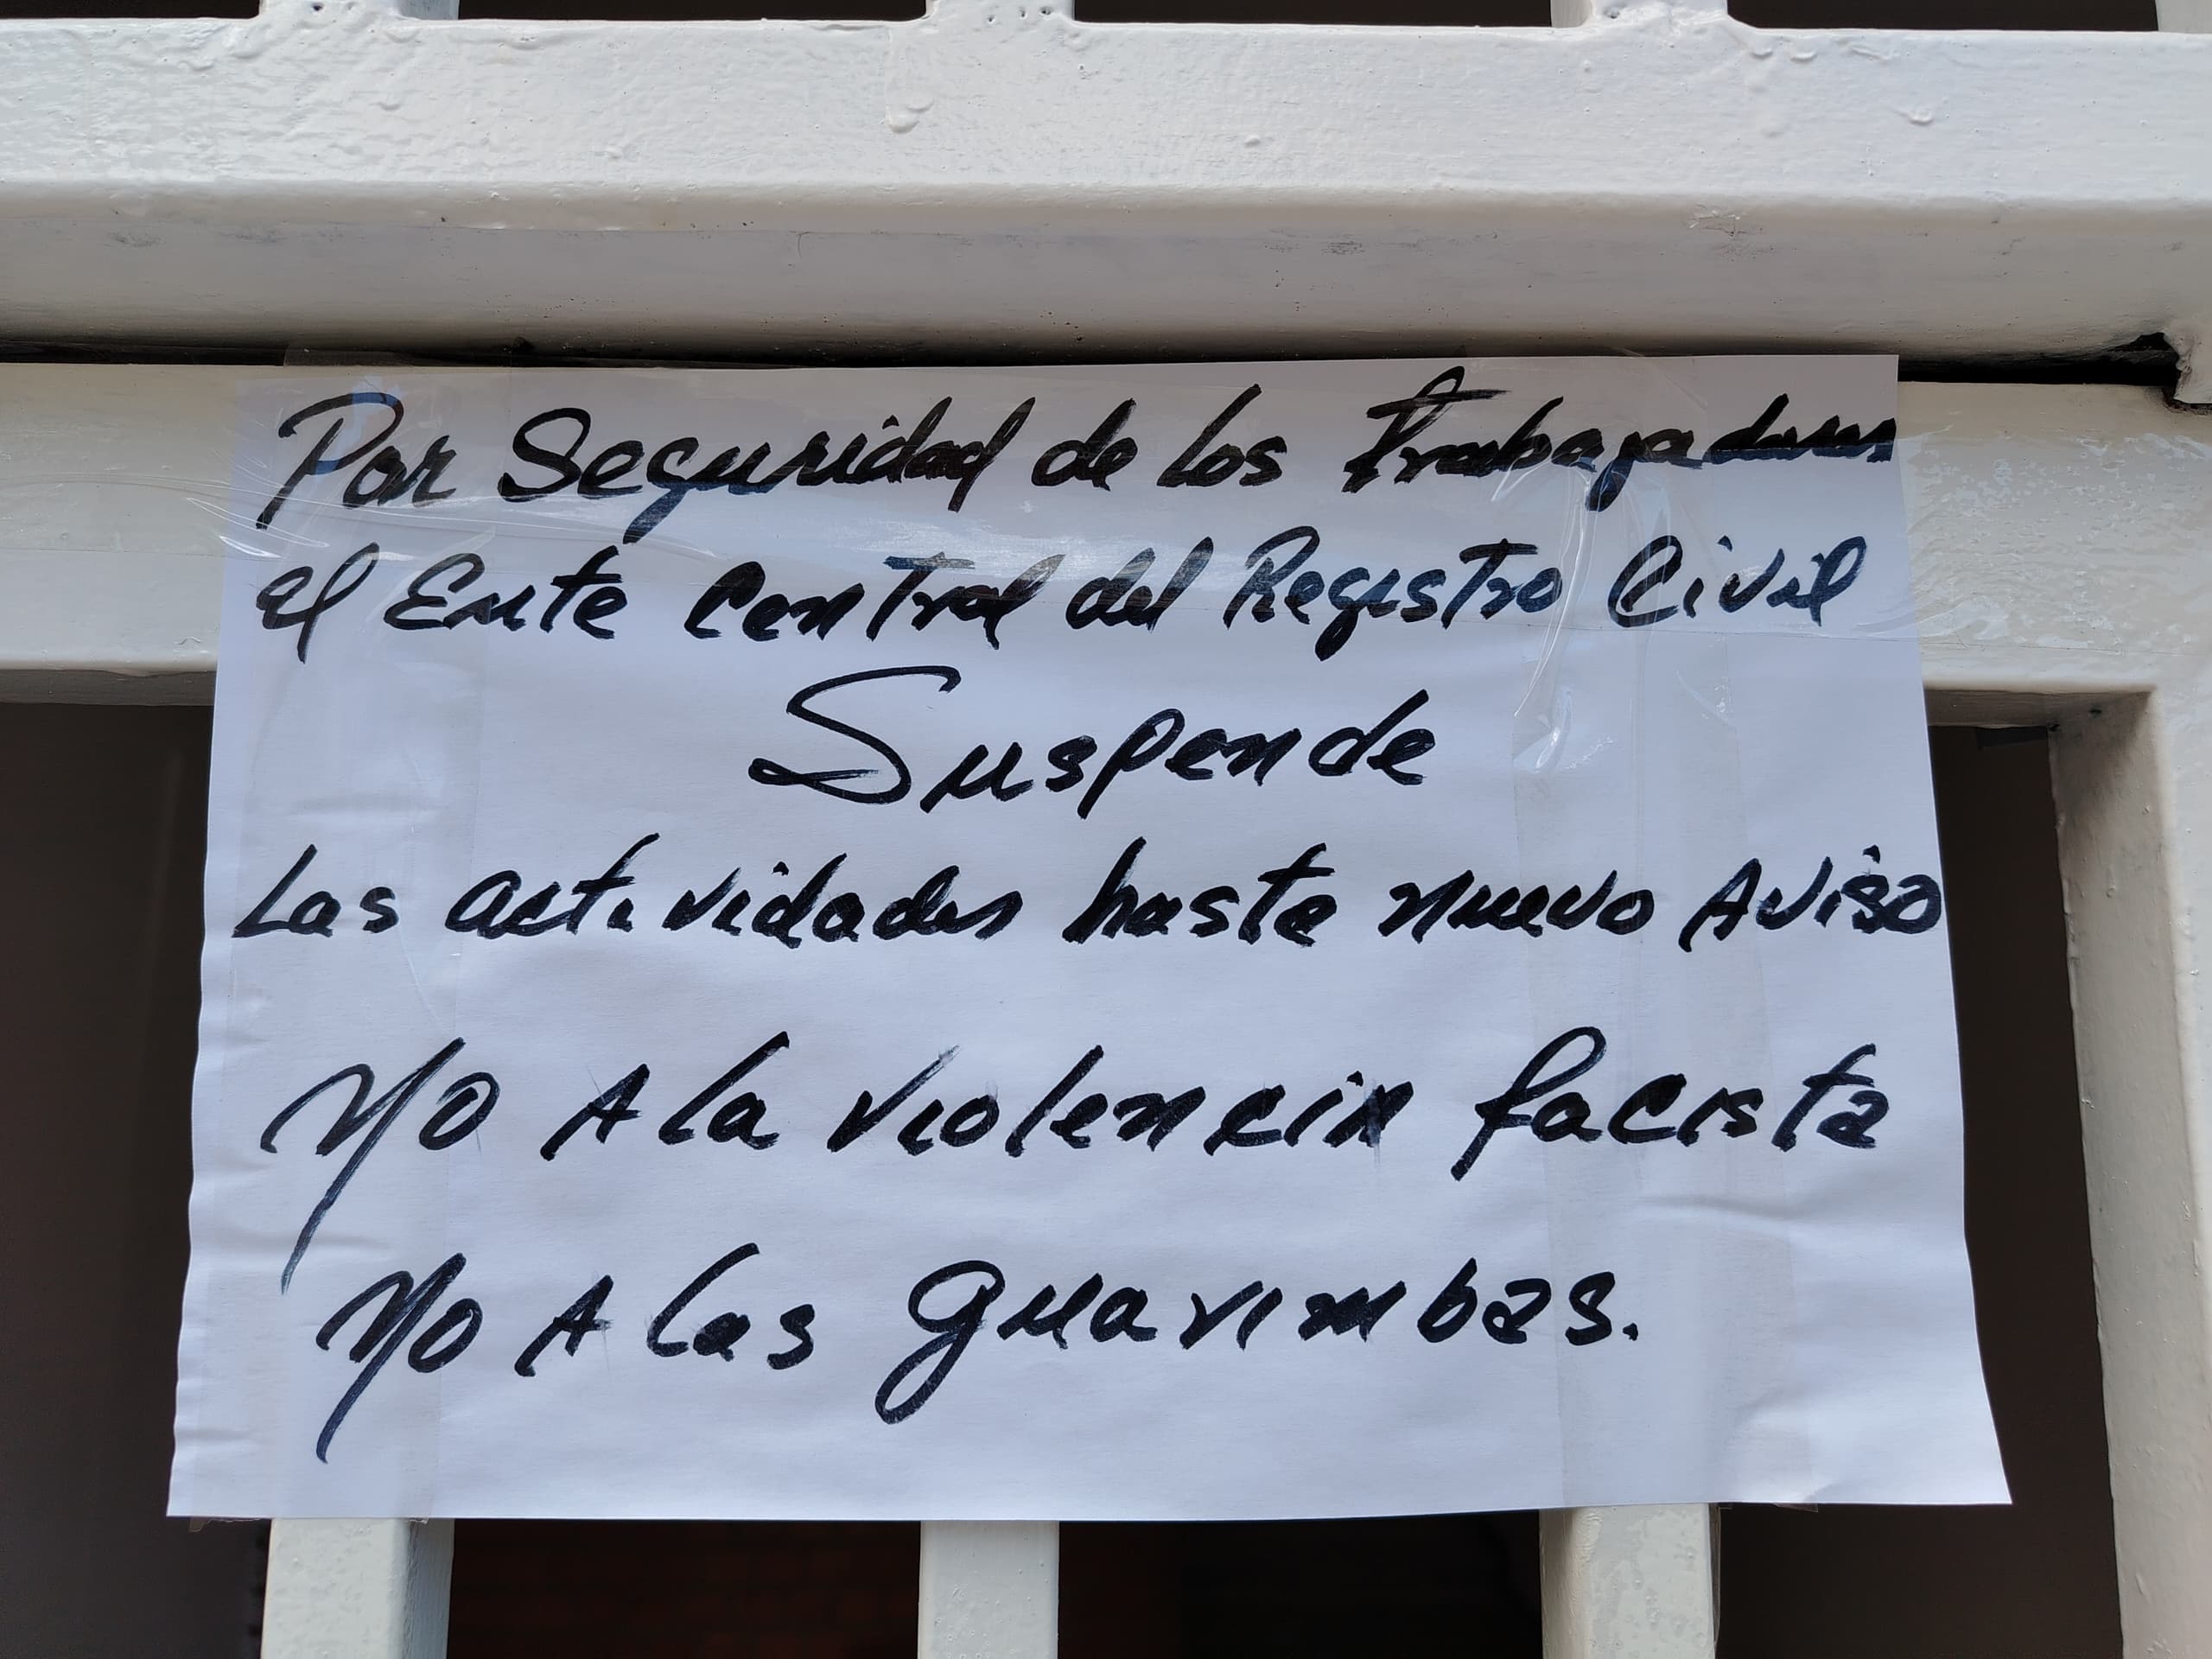 Por Seguridad de los trabajadores
el Ente Central del Registro Civil
Suspende
Las actividades hasta nuevo Aviso
NO A la violencia facista
NO A las guarimbas.